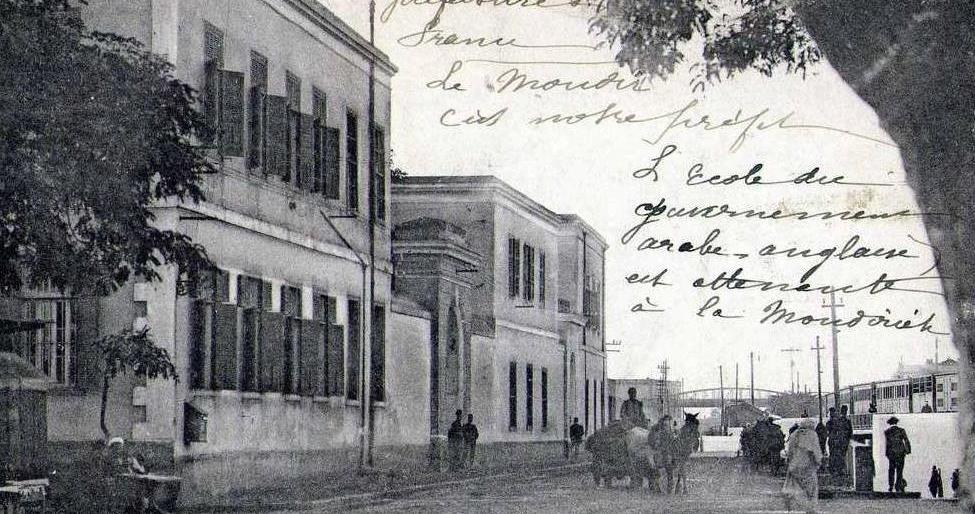 préfecture
France
Le Moudir
c'est notre préfet
L'Ecole du
gouvernement
arabe-anglaise
est attenante
à la Moudirieh